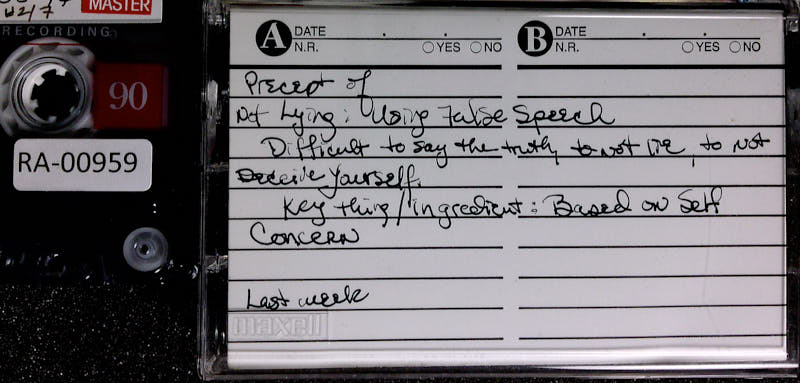 MASTER
RECORDING
90
RA-00959
A DATE . .
N.R. YES NO
B DATE . .
N.R. YES NO
Precept of
Not Lying: Using False Speech
Difficult to say the truth, to not lie, to not
Deceive yourself.
Key thing/ingredient: Based on Self
Concern
Last week
maxell